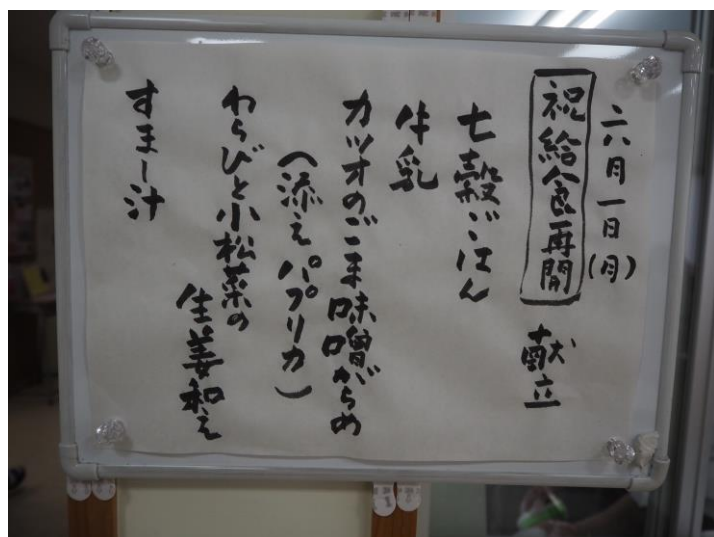 六月一日(月)
祝給食再開 献立
七穀ごはん
牛乳
カツオのごま味噌がらめ
(添え パプリカ)
わらびと小松菜の
生姜和え
すまし汁